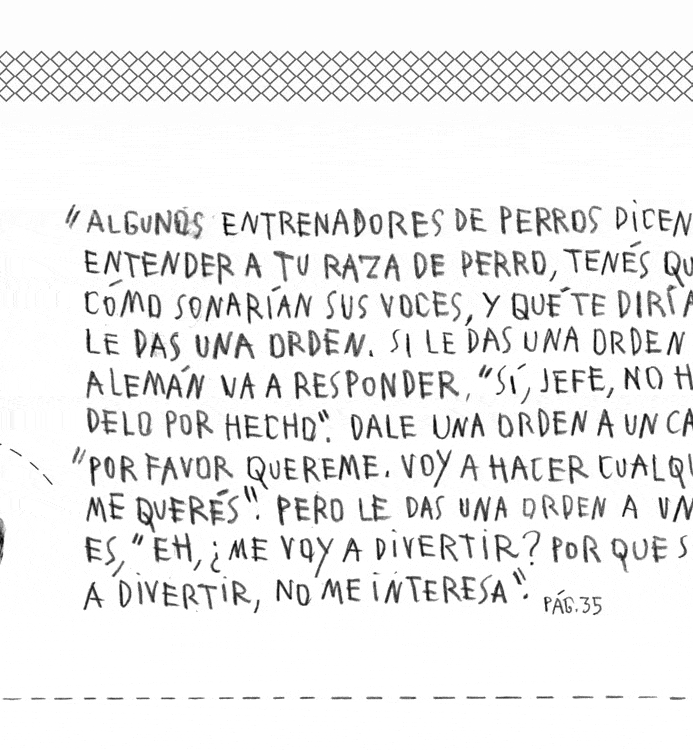 "ALGUNOS ENTRENADORES DE PERROS DICEN
ENTENDER A TU RAZA DE PERRO, TENÉS QU
CÓMO SONARÍAN SUS VOCES, Y QUÉ TE DIRÍA
LE DAS UNA ORDEN. SI LE DAS UNA ORDEN
ALEMÁN VA A RESPONDER, "SÍ, JEFE, NO H
DELO POR HECHO". DALE UNA ORDEN A UN CA
"POR FAVOR QUEREME. VOY A HACER CUALQU
ME QUERÉS". PERO LE DAS UNA ORDEN A UN
ES, "EH, ¿ME VOY A DIVERTIR? POR QUE S
A DIVERTIR, NO ME INTERESA".
PÁG.35